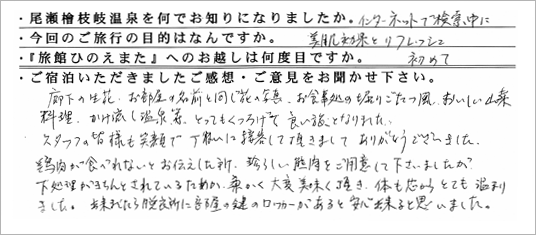 ・尾瀬檜枝岐温泉を何でお知りになりましたか。インターネットで検索中に
・今回のご旅行の目的はなんですか。 美肌効果とリフレッシュ
・『旅館ひのえまた』へのお越しは何度目ですか。 初めて
・ご宿泊いただきましたご感想・ご意見をお聞かせ下さい。
廊下の生花、お部屋の名前と同じ花の写真、お食事処の堀りごたつ風、おいしい山菜
料理、かけ流し温泉等、とってもくつろげて良い旅となりました。
スタッフの皆様も笑顔で丁寧に接客して頂きましてありがとうございました。
鶏肉が食べれないとお伝えした所、珍らしい熊肉をご用意して下さいましたが
下処理がきちんとされているためか、柔かく大変美味く頂き、体も芯からとても温まり
ました。出来ましたら脱衣所に部屋の鍵のロッカーがあると安心出来ると思いました。